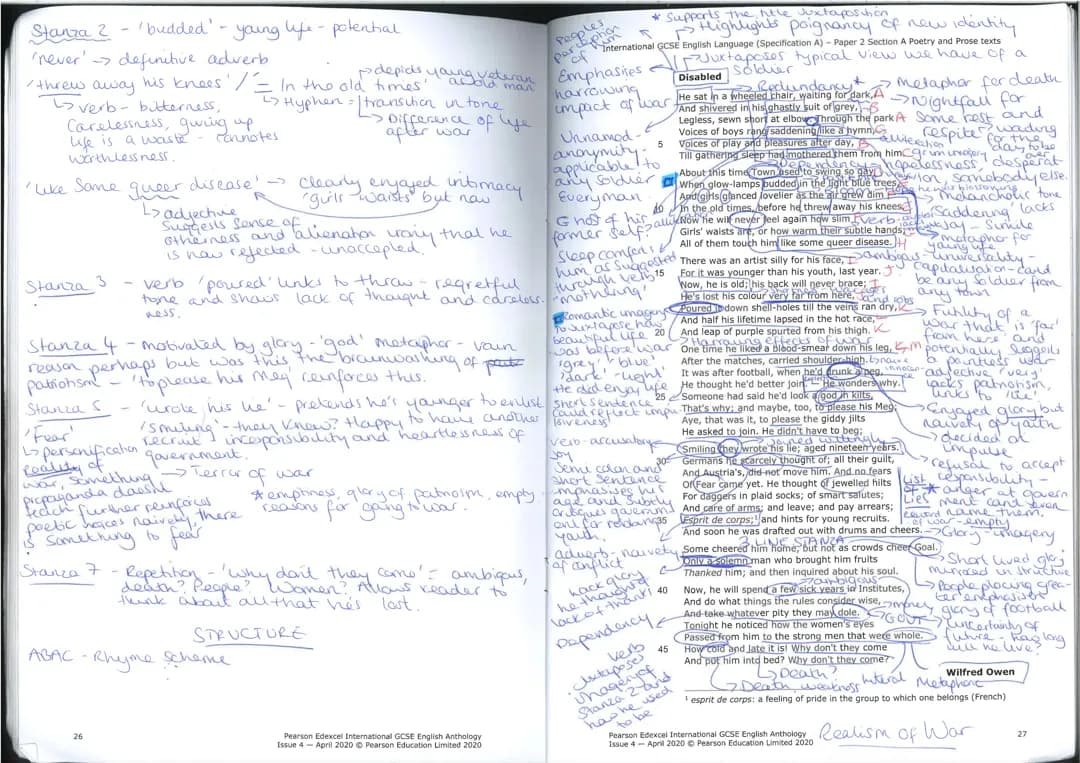 Stanza 2 - 'budded' - young life - potential
'never' → definitive adverb
'threw away his knees'
↳ verb - bitterness,
Carelessness, giving up
life is a waste - connotes
worthlessness.
In the old times
depicts young veteran
as old man
↳ Hyphen = transition in tone
↳ Difference of life
after war
'like some queer disease' → clearly enjoyed intimacy
'girls' waists' but now
↳ adjective
Suggests sense of
otherness and alienation
he
is now rejected - unaccepted.
Stanza 3 - verb 'poured' links to throw - regretful
tone and shows lack of thought and careless-
ness.
Stanza 4 - motivated by glory - 'god' metaphor - vain
reason perhaps but was this the brainwashing of
patriotism - 'to please his Meg' reinforces this.
Stanza 5 - 'wrote his lie' - pretends he's younger to enlist
'smiling' - they knew? Happy to have another
recruit, irresponsibility and heartlessness of
government.
'Fear'
↳ personification
reality of
war, something
propaganda doesn't
teach further reinforced
poetic choices naively, there
is something to fear
→ Terror of war
* emptiness, glory of patriotism, empty
reasons for going to war.
Stanza 7 - Repetition - 'Why don't they come' - ambiguous,
death? People? Women? Allows reader to
think about all that he's lost.
STRUCTURE
ABAC - Rhyme scheme
26
Pearson Edexcel International GCSE English Anthology
Issue 4 — April 2020 © Pearson Education Limited 2020
* Supports the title juxtaposition
→ Highlights poignancy of new identity
International GCSE English Language (Specification A) – Paper 2 Section A Poetry and Prose texts
Juxtaposes typical view we have of a
soldier
People's
perception
him
Emphasises
harrowing
impact of war
Unnamed -
anonymity -
applicable to
any soldier
Everyman
Ghost of his
former self
Sleep comforts
him as suggested
through verb
'mothering'
Romantic imagery
to juxtapose how
beautiful life
was before war
'grey' 'blue'
'dark' 'light'
He did enjoy life
Short sentence
could reflect impu
lsiveness
verb - accusatory
joy
Semi colon and
Short Sentence
emphasises his
age and subtly
critiques government
and for robbing
youth.
adverb - naivety
of conflict
lack glory
he thought
lack of thanks
Dependency
verb
juxtaposes
imagery of
Stanza 2 and
how he used
to be
Disabled
He sat in a wheeled chair, waiting for dark, A
And shivered in his ghastly suit of grey, B
Legless, sewn short at elbow. Through the park A
Voices of boys rang saddening like a hymn, C
5 Voices of play and pleasures after day, B
Till gathering sleep had mothered them from him. C
About this time Town used to swing so gay
When glow-lamps budded in the light blue trees,
And girls glanced lovelier as the air grew dim,
10 In the old times, before he threw away his knees.
Now he will never feel again how slim
Girls' waists are, or how warm their subtle hands;
All of them touch him like some queer disease. H
There was an artist silly for his face, I
15 For it was younger than his youth, last year. J
Now, he is old; his back will never brace; I
He's lost his colour very far from here,
Poured it down shell-holes till the veins ran dry, K
And half his lifetime lapsed in the hot race,
20 And leap of purple spurted from his thigh. K
One time he liked a blood-smear down his leg,
After the matches, carried shoulder-high.
It was after football, when he'd drunk a peg,
He thought he'd better join. – He wonders why.
25 Someone had said he'd look a god in kilts,
That's why; and maybe, too, to please his Meg;
Aye, that was it, to please the giddy jilts
He asked to join. He didn't have to beg;
Smiling they wrote his lie; aged nineteen years.
30 Germans he scarcely thought of; all their guilt,
And Austria's, did not move him. And no fears
Of Fear came yet. He thought of jewelled hilts
For daggers in plaid socks; of smart salutes;
And care of arms; and leave; and pay arrears;
35 Esprit de corps;¹ and hints for young recruits.
And soon he was drafted out with drums and cheers.
3 LINE STANZA
Some cheered him home, but not as crowds cheer Goal.
Only a solemn man who brought him fruits
Thanked him; and then inquired about his soul.
40 Now, he will spend a few sick years in Institutes,
And do what things the rules consider wise,
And take whatever pity they may dole.
Tonight he noticed how the women's eyes
Passed from him to the strong men that were whole.
45 How cold and late it is! Why don't they come
And put him into bed? Why don't they come?
Redundancy *
Metaphor for death
→ Nightfall for
Some rest and
respite
waiting
for the
day to be
over
grim imagery
Dependency
hopelessness desperat-
ion, somebody else.
Melancholic tone
'Saddening' lacks
joy - simile
metaphor for
young life
ambiguous - universality -
capitalisation - could
be any soldier from
any town
Harrowing effects of war
Futility of a
war that is 'far
from here' and
potentially suggests
a pointless war
adjective 'very'
lacks patriotism,
links to 'lie'.
Enjoyed glory but
naivety of youth
decided on
impulse
joined willingly
refusal to accept
responsibility -
* anger at govern
ment and even
name them.
List
of
lies
of war - empty
→ Glory - imagery
Short lived glory
mirrored in structure
→ People placing grea-
ter emphasis on
glory of football
ambiguous
→ money
GOVT
Uncertainty of
future - how long
will he live?
↳ Death?
→ Death, weakness
literal Metaphoric
Wilfred Owen
¹ esprit de corps: a feeling of pride in the group to which one belongs (French)
Pearson Edexcel International GCSE English Anthology
Issue 4 — April 2020 © Pearson Education Limited 2020
Realism of War
27